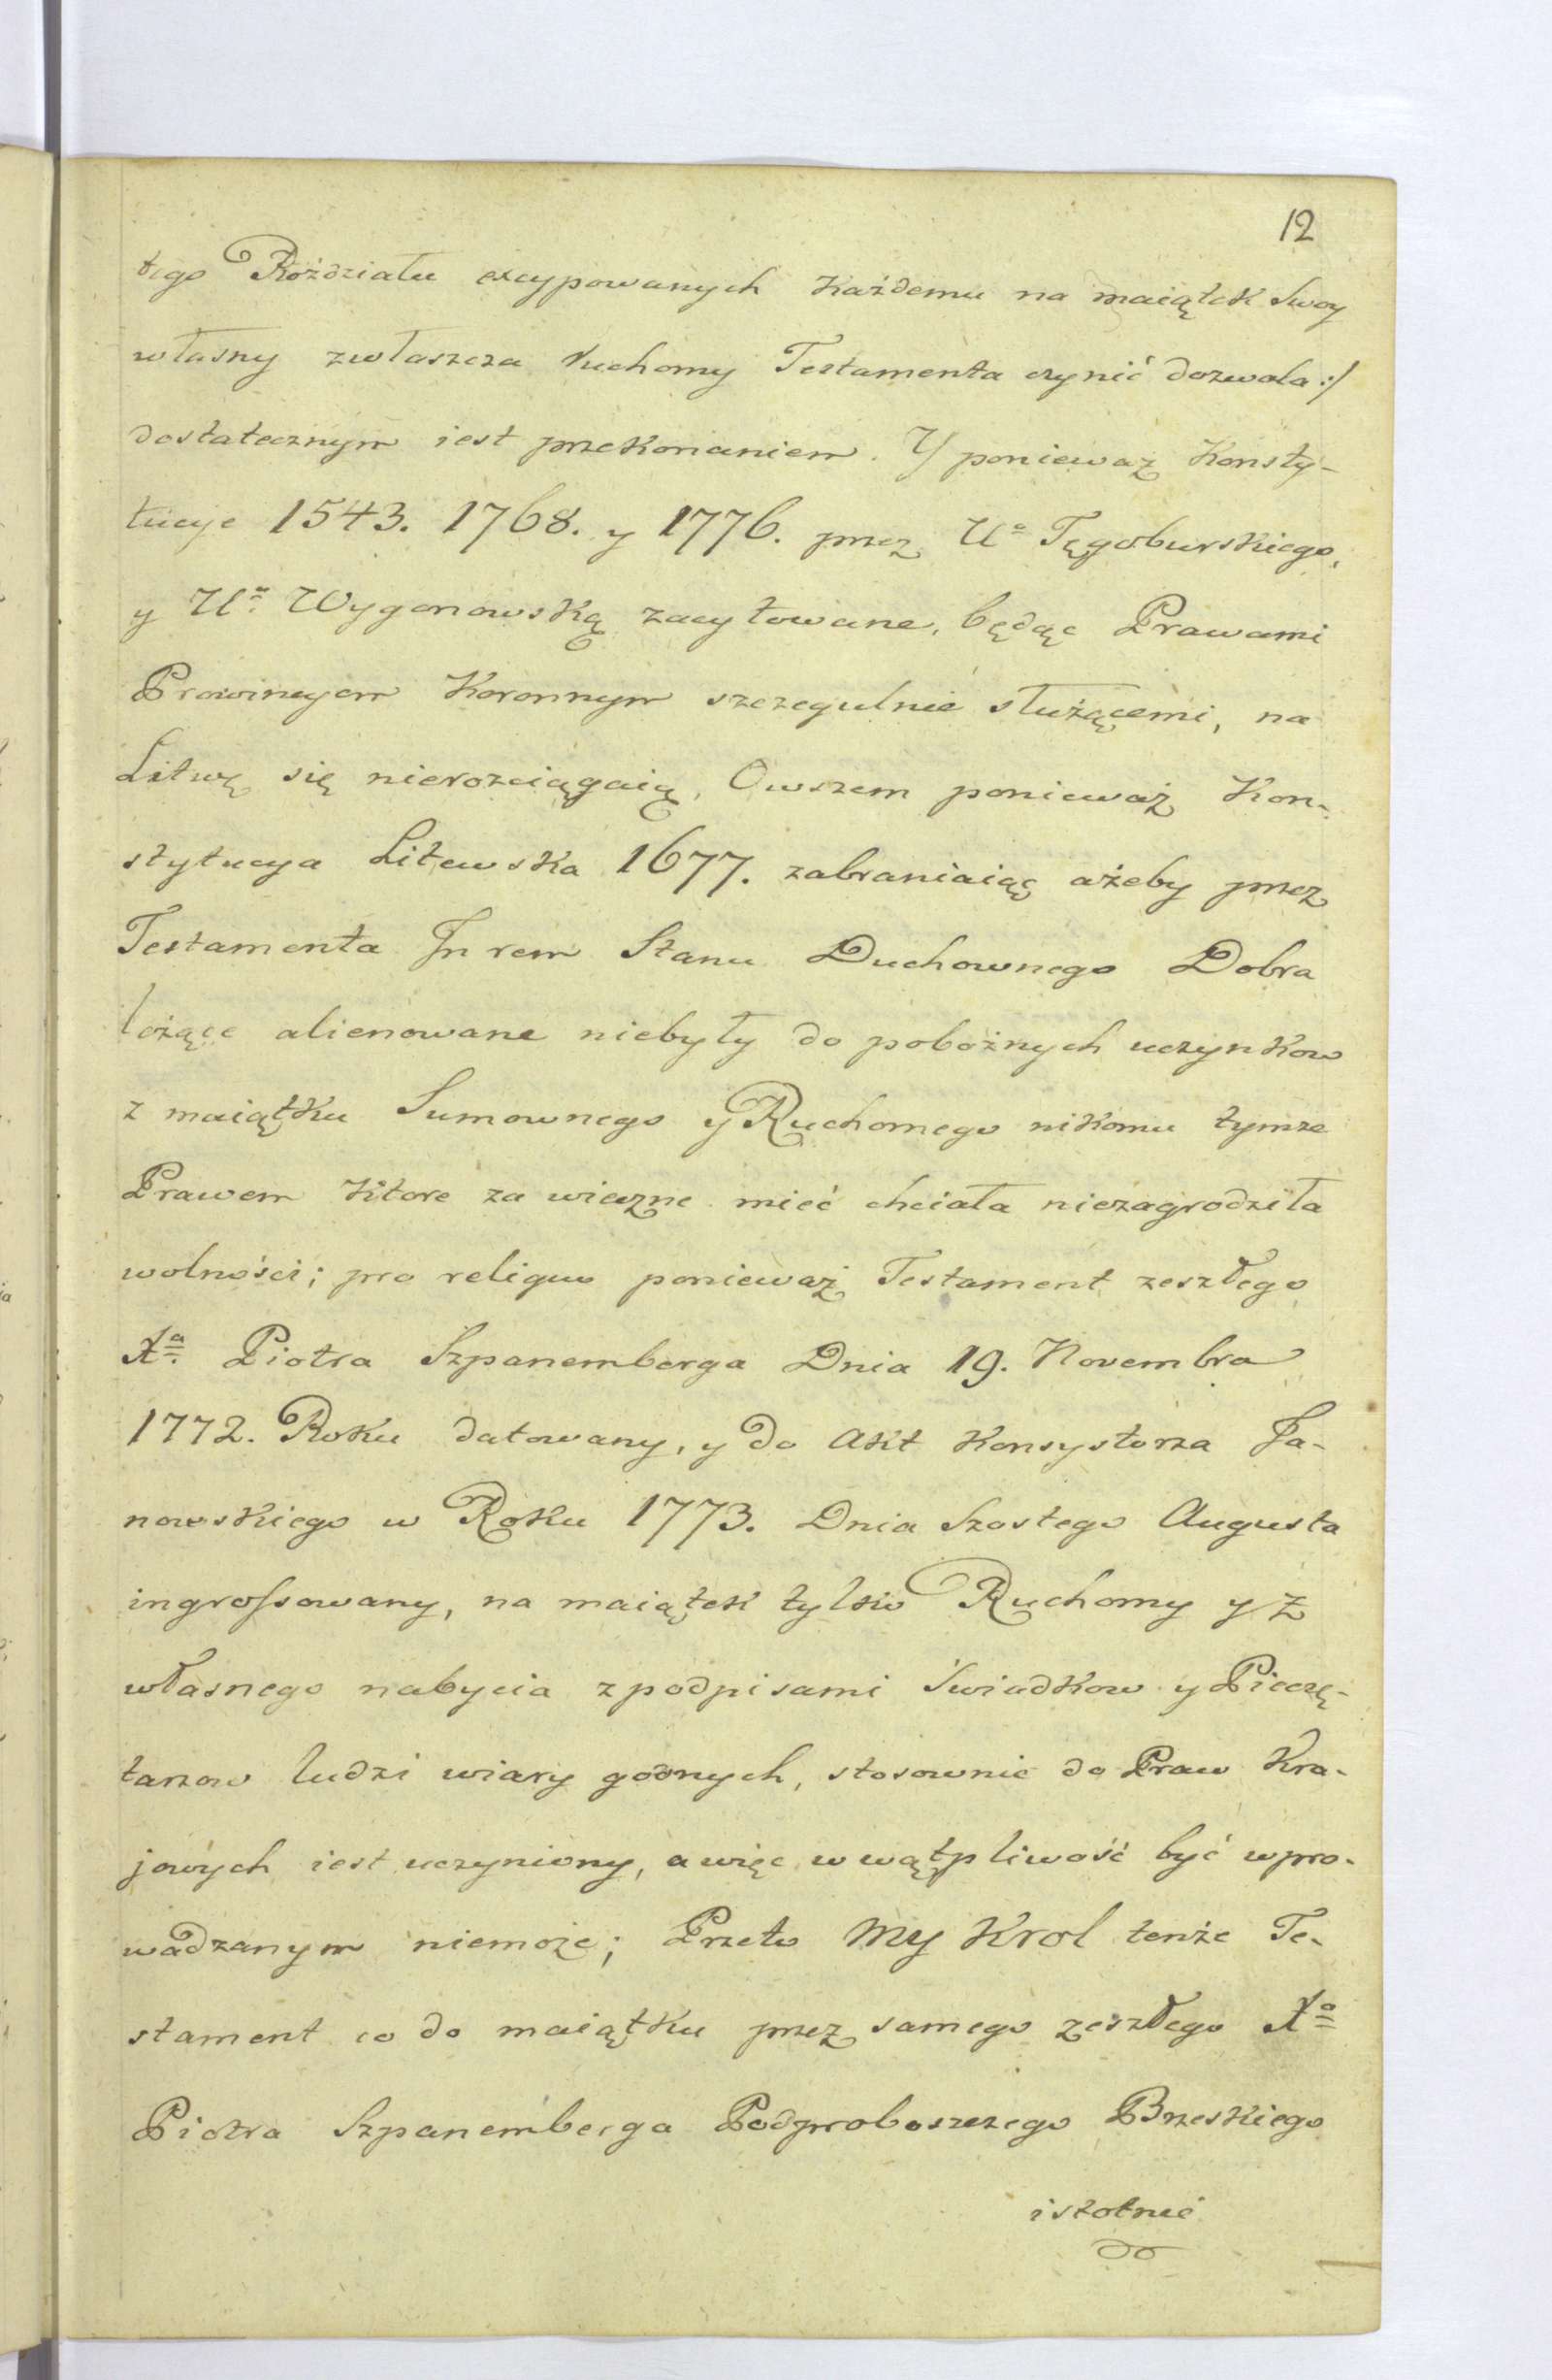 12
tego Rożdziału excypowanych każdemu na maiątek Swoy
własny zwłaszcza Ruchomy Testamenta czynić dozwala :/
dostatecznym iest przekonaniem. Y ponieważ Konsty-
tucye 1543. 1768. y 1776. przez Uo Tęgoburskiego,
y Ua: Wygonowską zacytowane, będąc Prawami
Prowincyom Koronnym szczegulnie służącemi, na
Litwę się nierozciągaią, Owszem ponieważ Kon-
stytucya Litewska 1677. zabraniaiąc ażeby przez
Testamenta In rem Stanu Duchownego Dobra
leżące alienowane niebyły do pobożnych uczynkow
z maiątku Summownego y Ruchomego nikomu tymże
Prawem ktore za wieczne mieć chciała niezagrodziła
wolności; pro reliquo ponieważ Testament zeszłego
Xa: Piotra Szpanemberga Dnia 19. Novembra
1772. Roku datowany, y do Akt Konsystorza Ja-
nowskiego w Roku 1773. Dnia Szostego Augusta
ingrossowany, na maiątek tylko Ruchomy y z
własnego nabycia z podpisami Świadkow y Pieczę-
tarzow ludzi wiary godnych, stosownie do Praw Kra-
jowych iest uczyniony, a więc w wątpliwość być wpro-
wadzanym niemoże; Przeto My Krol tenże Te-
stament co do maiątku przez samego zeszłego Xa
Piotra Szpanemberga Podproboszczego Brzeskiego
istotnie